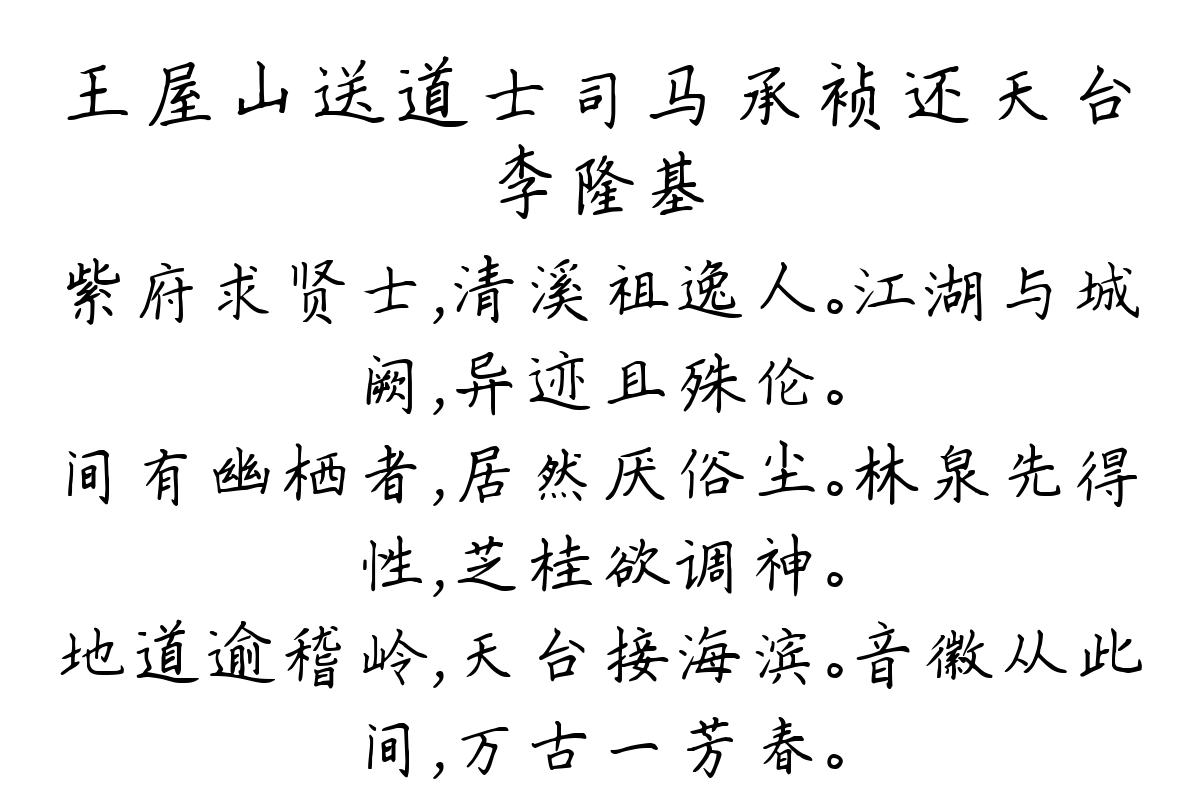 王屋山送道士司马承祯还天台
李隆基
紫府求贤士,清溪祖逸人。江湖与城
阙,异迹且殊伦。
间有幽栖者,居然厌俗尘。林泉先得
性,芝桂欲调神。
地道逾稽岭,天台接海滨。音徽从此
间,万古一芳春。